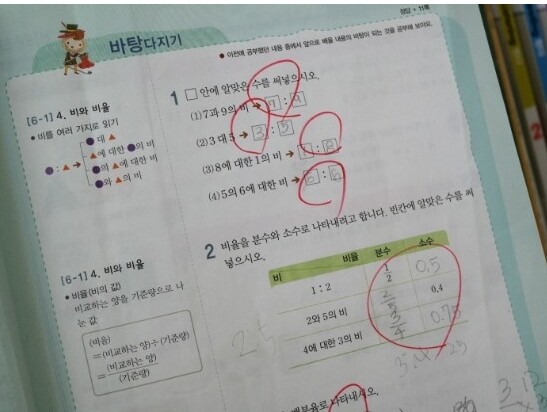 정답 • 11쪽
바탕다지기
● 이전에 공부했던 내용 중에서 앞으로 배울 내용의 바탕이 되는 것을 공부해 보아요.
[6-1] 4. 비와 비율
● 비를 여러 가지로 읽기
● : ▲ →
● 대 ▲
▲에 대한 ●의 비
●의 ▲에 대한 비
●와 ▲의 비
1 □ 안에 알맞은 수를 써넣으시오.
(1) 7과 9의 비 → 7 : 9
(2) 3 대 5 → 3 : 5
(3) 8에 대한 1의 비 → 1 : 8
(4) 5의 6에 대한 비 → 5 : 6
[6-1] 4. 비와 비율
● 비율(비의 값)
비교하는 양을 기준량으로 나
눈 값
(비율)
=(비교하는 양)÷(기준량)
=(비교하는 양)/(기준량)
2 비율을 분수와 소수로 나타내려고 합니다. 빈칸에 알맞은 수를 써
넣으시오.
비 비율 분수 소수
1 : 2 1/2 0.5
2와 5의 비 2/5 0.4
4에 대한 3의 비 3/4 0.75
백분율로 나타내시오.